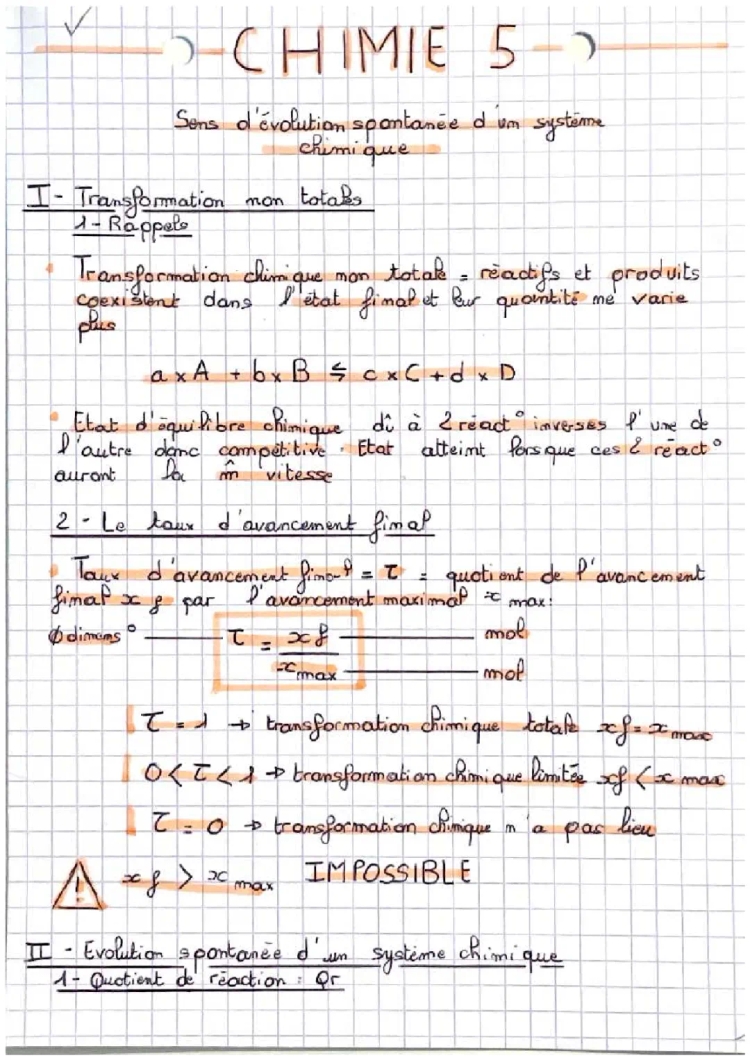 CHIMIE 5
Sens d'évolution spontanée d'un système
chimique
I - Transformation non totales
1 - Rappels
Transformation chimique non totale = réactifs et produits
coexistent dans l'état final et leur quantité ne varie
plus
a x A + b x B ⇆ c x C + d x D
Etat d'équilibre chimique dû à 2 réact° inverses l'une de
l'autre donc compétitive. Etat atteint lorsque ces 2 réact°
auront la m̂ vitesse
2 - Le taux d'avancement final
Taux d'avancement final = τ = quotient de l'avancement
final x f par l'avancement maximal x max:
∅ dimens° τ = xf mol
x max mol
τ = 1 → transformation chimique totale xf = x max
0 < τ < 1 → transformation chimique limitée xf < x max
τ = 0 → transformation chimique n'a pas lieu
! xf > x max IMPOSSIBLE
II - Evolution spontanée d'un système chimique
1 - Quotient de réaction : Qr